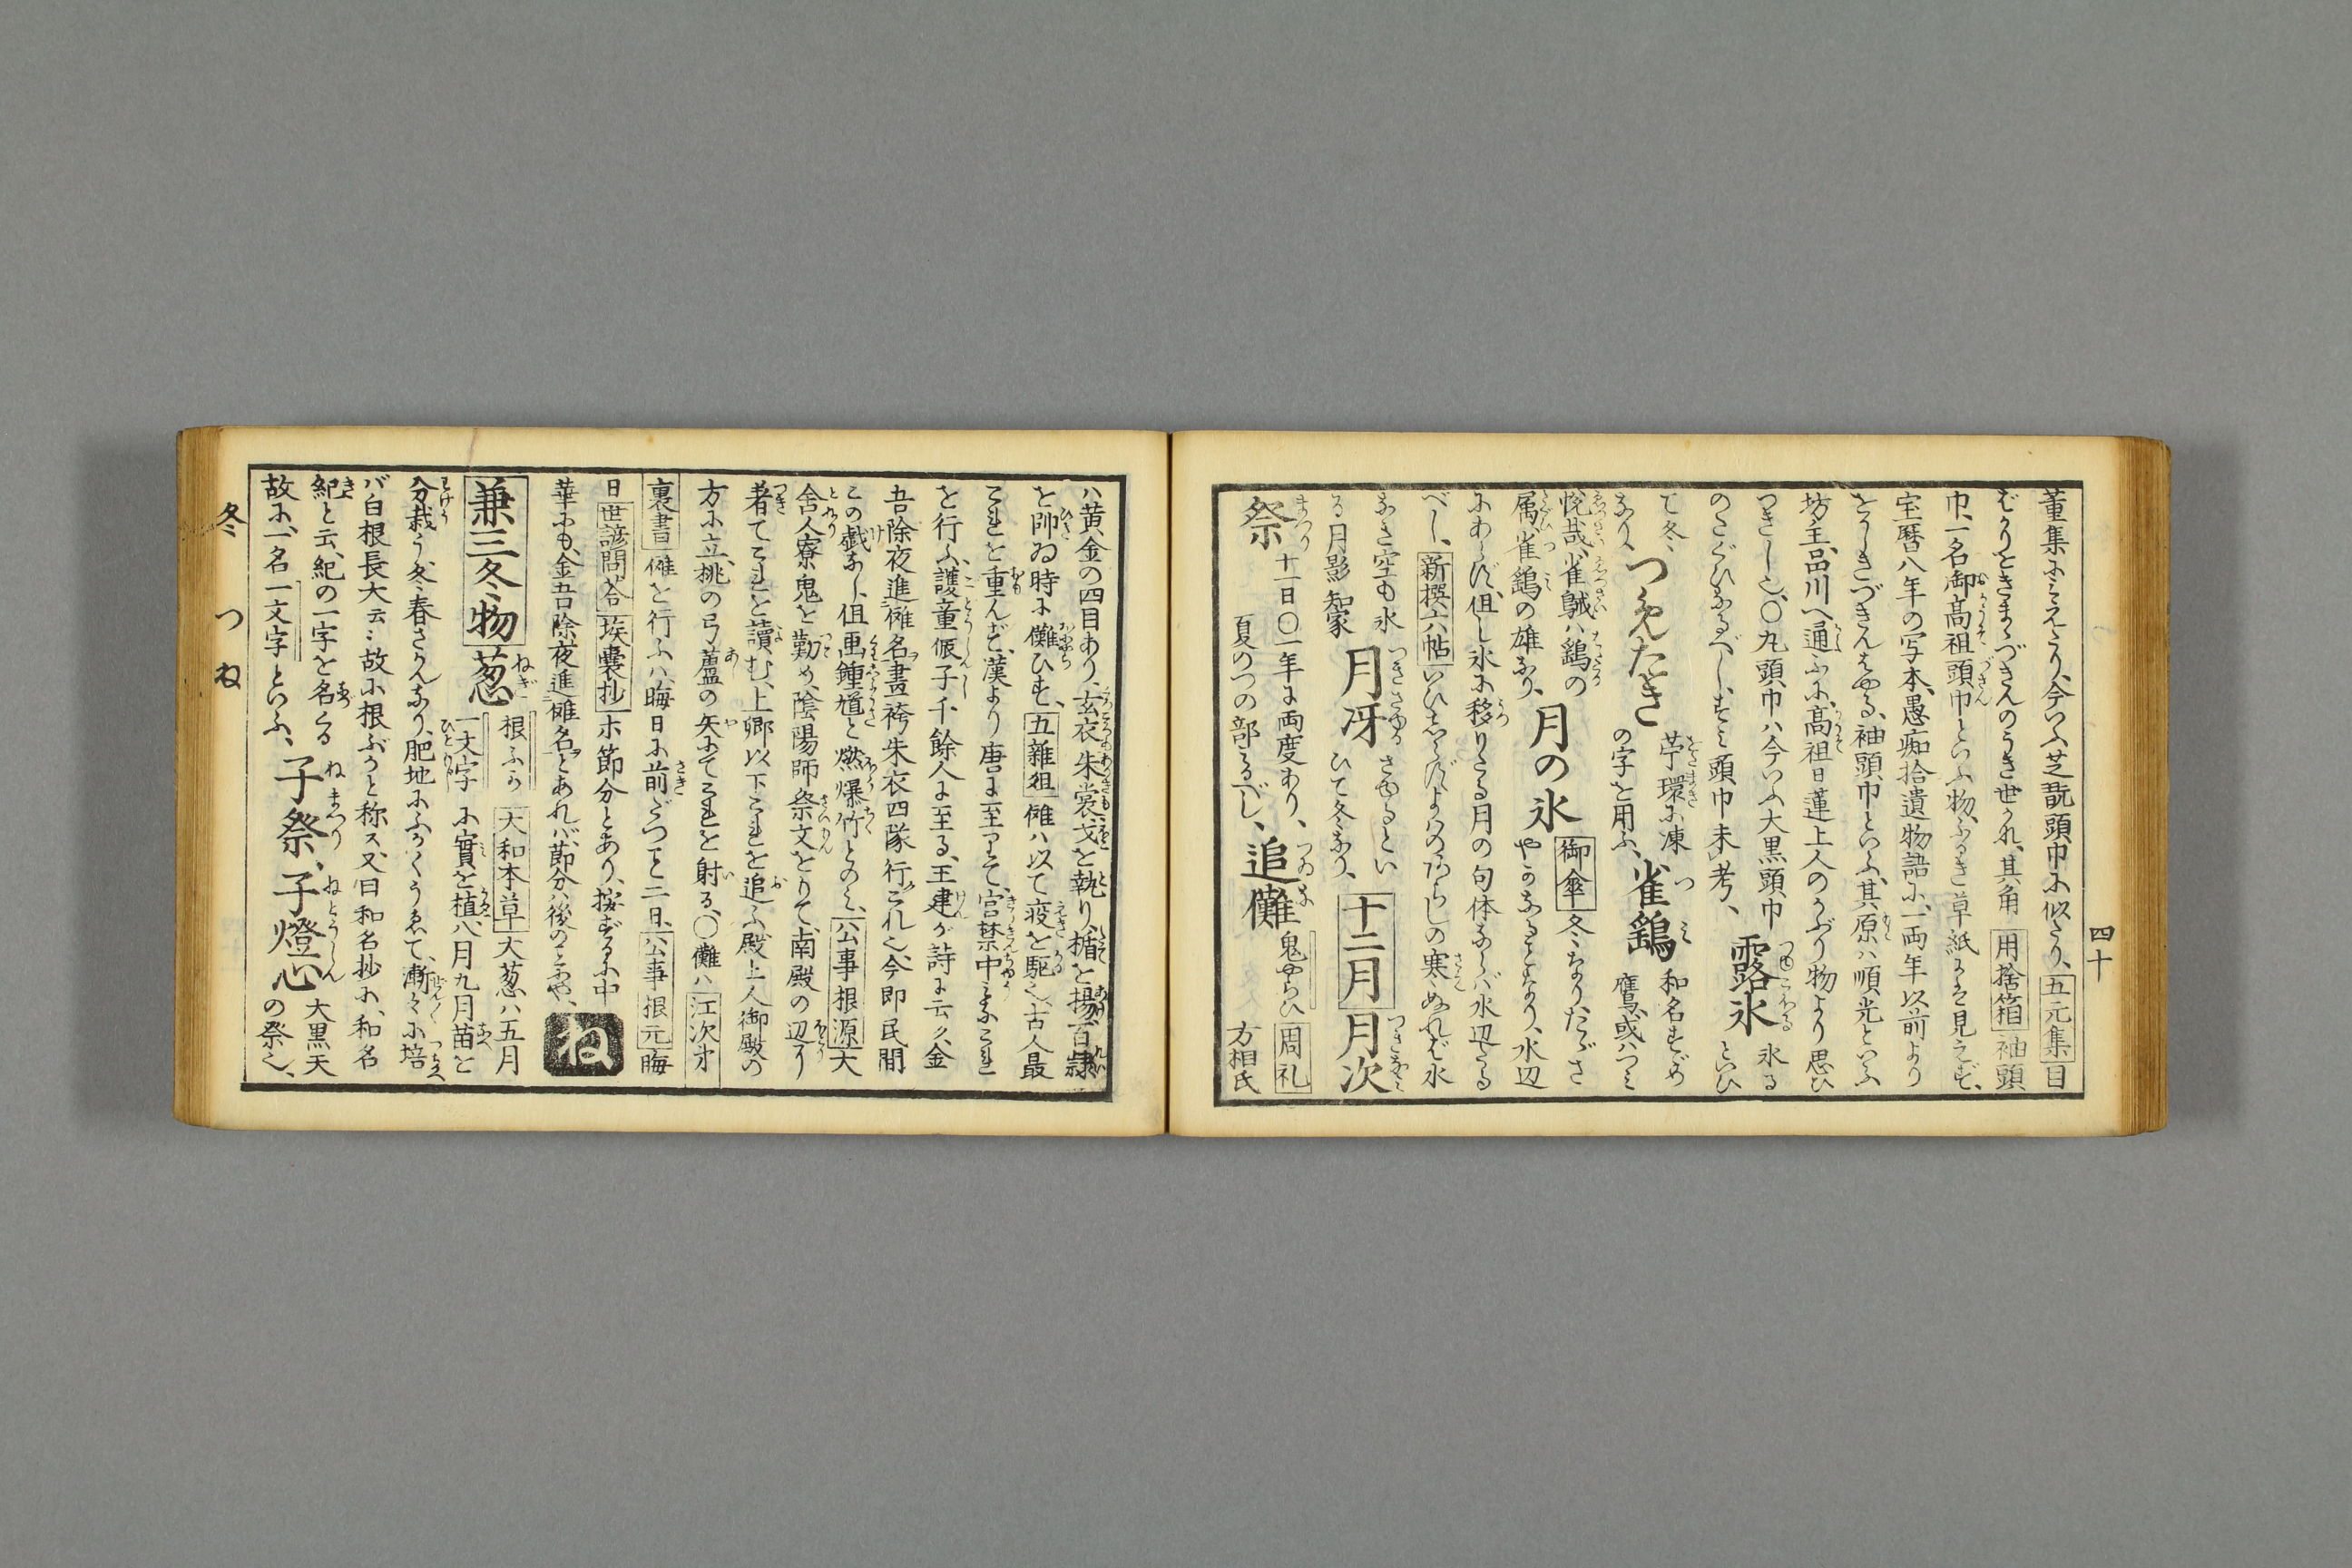 四十
董集にみえたり、今いふ芝翫頭巾に似たり、五元集目
ばかりときまゝづきんのうき世かれ、其角 用捨箱 袖頭
巾、一名御高祖頭巾といふ物、ふるき草紙にも見えず、
宝暦八年の写本、愚痴拾遺物語に、一両年以前より
とうしきづきんはやる、袖頭巾といふ、其原ハ順光といふ
坊主、品川へ通ふに、高祖日蓮上人のかぶり物より思ひ
つきし也、〇丸頭巾ハ今いふ大黒頭巾
のたぐひなるべし、すみ頭巾未考、
露氷 つゆこほる 氷る
といひ
て冬
なり、
つらたき
苧環に凍
の字を用ふ、
雀鷂 つみ
和名すゞめ
鷹、或ハつミ
悦哉、雀𪀚ハ鷂の
属、雀鷂の雄なり、
月の氷
御傘 冬ちり、たゞさ
やかなるとなり、水辺
にあらず、但し氷に移りたる月の句体ならバ水辺たる
べし、新撰六帖 いひしらずよハのあらしの寒ぬれば氷
なき空も氷
る月影 知家
月冴 つきさゆる
さゆるとい
ひて冬なり、
十二月
月次 つきなミ
祭 まつり
十一日〇一年に両度あり、
夏のつの部にあるべし、
追儺 つゐな
鬼やらひ 周礼
方相氏
ハ黄金の四目あり、玄衣朱裳、戈を執り、楯を揚、百隷
を帥ゐ時に儺ひす、五雜俎 儺ハ以て疫を駆也、古人最
これを重んず、漢より唐に至りて、宮禁中ミなこれ
を行ふ、護童侲子千餘人に至る、王建が詩に云ク、金
吾除夜進儺名、畫袴朱衣四隊行、これ也、今即民間
この戯なし、但画鍾馗と燃爆竹とのミ、公事根源 大
舍人寮鬼を勤め、陰陽師祭文をとりて、南殿の辺に
着てこれを讀む、上卿以下これを追ふ、殿上人御殿の
方に立、桃の弓蘆の矢にてこれを射る、〇儺ハ 江次㐧
裏書 儺を行ふハ、晦日に前だつこと二日、公事根元 晦
日 世諺問荅 埃嚢抄 ホ節分とあり、按ずるに中
華にも、金吾除夜進儺名とあれバ、節分ハ後のことや、
ね
兼三冬物
葱 ねぎ
根ふか
一文字 ひともじ
大和本草 大葱ハ五月
に實を植、八月九月苗を
分栽う、冬春さかんなり、肥地にふかくうゑて、漸々に培
バ白根長大云云、故に根ぶかと称ス、又曰和名抄に、和名
紀と云、紀の一字を名くる
故に、一名一文字といふ、
子祭 ねまつり、子燈心 ねとうしん
大黒天
の祭也、
冬 つ ね